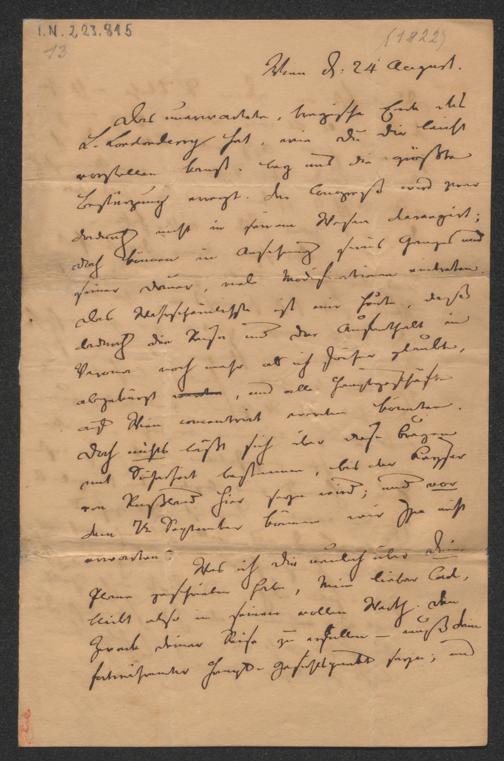 I.N. 223.815
13
(1822)
Wien d. 24 August.
Das unerwartete, tragische Ende des
L. Londonderry hat, wie Du Dir leicht
vorstellen kannst, bey uns die größte
Bestürzung erregt. Der Congreß wird zwar
dadurch nicht in seinem Wesen derangirt;
doch können in Ansehung seines Ganges und
seiner Dauer, viele Modificationen eintreten.
Das Wahrscheinlichste ist mir heute, daß
dadurch die Reise und der Aufenthalt in
Verona noch mehr als ich früher glaubte,
abgekürzt, und alle Hauptgeschäfte
auf Wien concentrirt werden könnten.
Doch nichts läßt sich über diese Fragen
mit Sicherheit bestimmen, bis der Kayser
von Rußland hier seyn wird; und vor
dem 7t September können wir Ihn nicht
erwarten. Was ich Dir neulich über Deine
Plane geschrieben habe, mein lieber Carl,
bleibt also in seinem vollen Werth. Den
Zweck deiner Reise zu erfüllen — muß dein
Haupt-Gesichtspunkt seyn; und